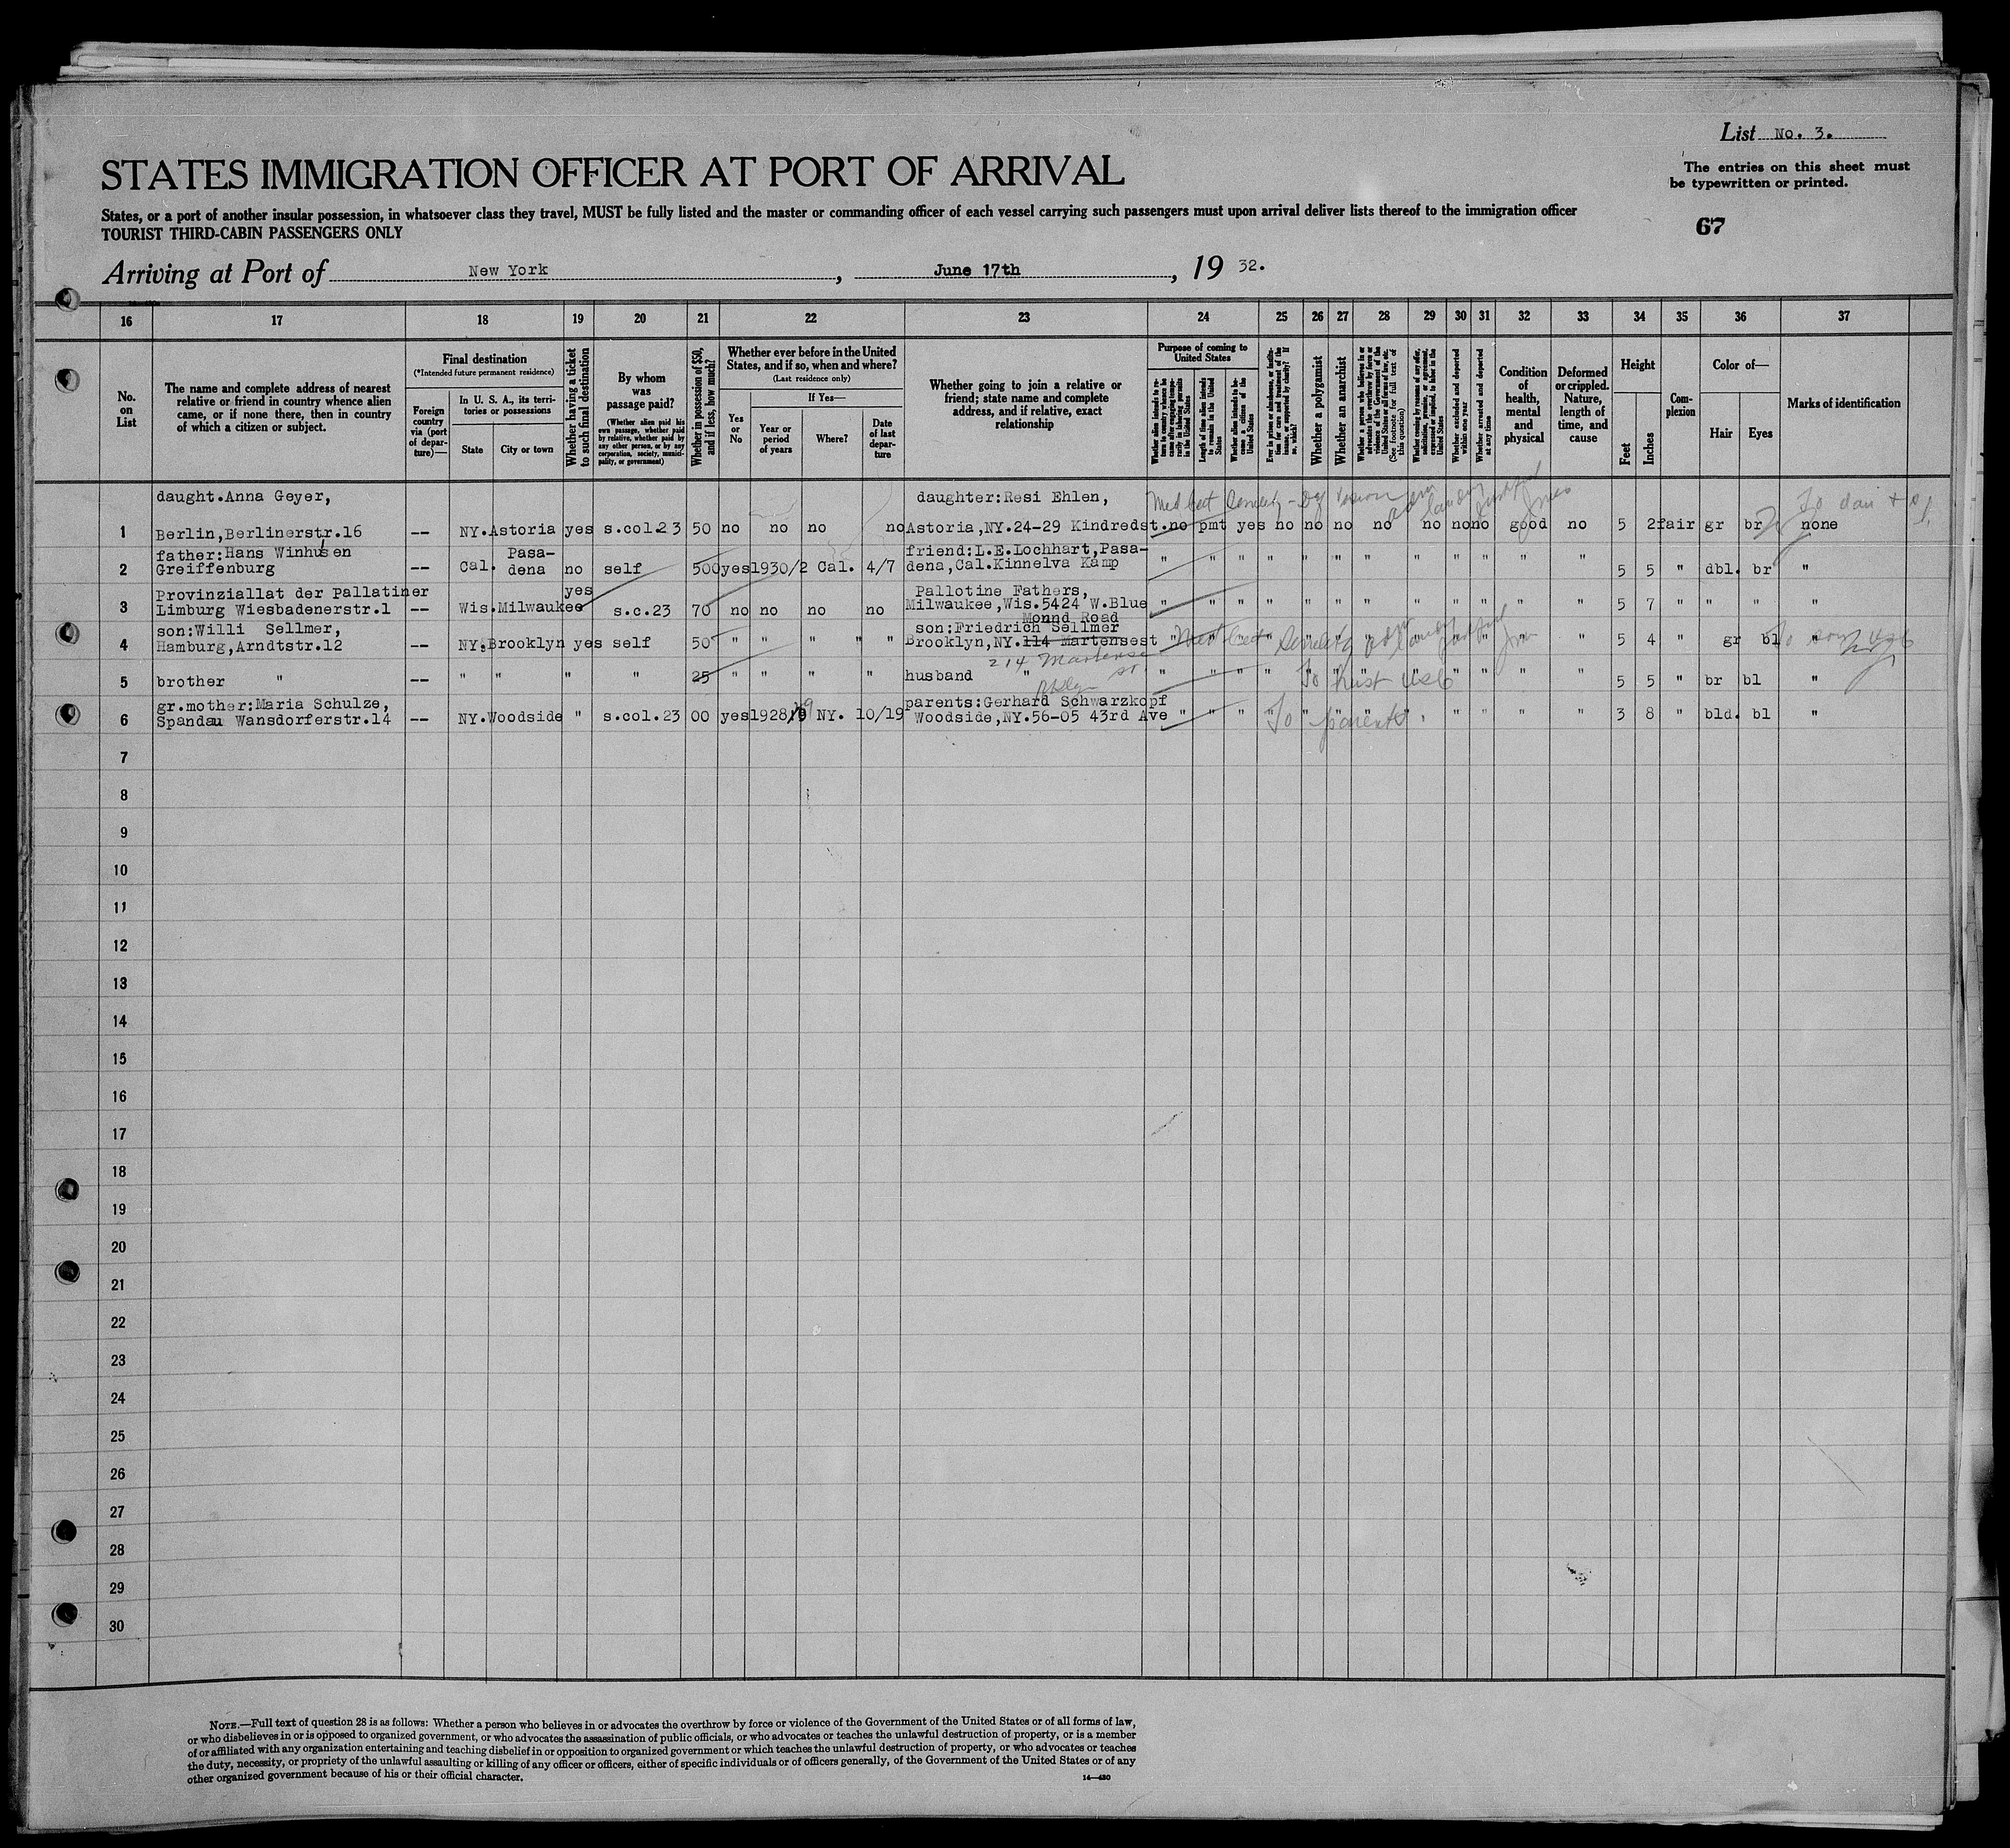 List No. 3.
STATES IMMIGRATION OFFICER AT PORT OF ARRIVAL
The entries on this sheet must
be typewritten or printed.
States, or a port of another insular possession, in whatsoever class they travel, MUST be fully listed and the master or commanding officer of each vessel carrying such passengers must upon arrival deliver lists thereof to the immigration officer
TOURIST THIRD-CABIN PASSENGERS ONLY
67
Arriving at Port of New York, June 17th, 19 32.
16 17 18 19 20 21 22 23 24 25 26 27 28 29 30 31 32 33 34 35 36 37
No.
on
List
The name and complete address of nearest
relative or friend in country whence alien
came, or if none there, then in country
of which a citizen or subject.
Final destination
(*Intended future permanent residence)
Foreign
country
via (port
of depar-
ture)—
In U. S. A., its terri-
tories or possessions
State City or town
Whether having a ticket
to such final destination
By whom
was
passage paid?
(Whether alien paid his
own passage, whether paid
by relative, whether paid by
any other person, or by any
corporation, society, munici-
pality, or government)
Whether in possession of $50,
and if less, how much?
Whether ever before in the United
States, and if so, when and where?
(Last residence only)
If Yes—
Yes
or
No
Year or
period
of years
Where?
Date
of last
depar-
ture
Whether going to join a relative or
friend; state name and complete
address, and if relative, exact
relationship
Purpose of coming to
United States
Whether alien intends to re-
turn to country whence he
came after engaging tempo-
rarily in laboring pursuits
in the United States
Length of time alien intends
to remain in the United
States
Whether alien intends to be-
come a citizen of the
United States
Ever in prison or almshouse, or institu-
tion for care and treatment of the
insane, or supported by charity? If
so, which?
Whether a polygamist
Whether an anarchist
Whether a person who believes in or
advocates the overthrow by force or
violence of the Government of the
United States or all forms of law, etc.
(See footnote for full text of
this question)
Whether coming by reason of any offer,
solicitation, promise, or agreement,
expressed or implied, to labor in the
United States
Whether excluded and deported
within one year
Whether arrested and deported
at any time
Condition
of
health,
mental
and
physical
Deformed
or crippled.
Nature,
length of
time, and
cause
Height
Feet
Inches
Com-
plexion
Color of—
Hair Eyes
Marks of identification
daught.Anna Geyer, daughter:Resi Ehlen,
1 Berlin,Berlinerstr.16 -- NY. Astoria yes s.col.23 50 no no no no Astoria,NY.24-29 Kindredst. no pmt yes no no no no no no no good no 5 2 fair gr br none
father:Hans Winhusen Pasa- friend:L.E.Lochhart,Pasa-
2 Greiffenburg -- Cal. dena no self 500 yes 1930/2 Cal. 4/7 dena,Cal.Kinnelva Kamp " " " " " " " " " " " " 5 5 " dbl. br "
Provinziallat der Pallatiner yes Pallotine Fathers,
3 Limburg Wiesbadenerstr.1 -- Wis. Milwaukee s.c.23 70 no no no no Milwaukee,Wis.5424 W.Blue " " " " " " " " " " " " 5 7 " " " "
Monnd Road
son:Willi Sellmer, son:Friedrich Sellmer
4 Hamburg,Arndtstr.12 -- NY. Brooklyn yes self 50 " " " " Brooklyn,NY.114 Martensest " " " " " " " " " " " " 5 4 " gr bl "
214 Martense St
5 brother " -- " " " " 25 " " " " husband " " " " " " " " " " " " " 5 5 " br bl "
Bklyn To husb
gr.mother:Maria Schulze, parents:Gerhard Schwarzkopf
6 Spandau Wansdorferstr.14 -- NY. Woodside " s.col.23 00 yes 1928/29 NY. 10/19 Woodside,NY.56-05 43rd Ave " " " " " " " " " " " " 3 8 " bld. bl "
To parents
7
8
9
10
11
12
13
14
15
16
17
18
19
20
21
22
23
24
25
26
27
28
29
30
NOTE.—Full text of question 28 is as follows: Whether a person who believes in or advocates the overthrow by force or violence of the Government of the United States or of all forms of law,
or who disbelieves in or is opposed to organized government, or who advocates the assassination of public officials, or who advocates or teaches the unlawful destruction of property, or is a member
of or affiliated with any organization entertaining and teaching disbelief in or opposition to organized government or which teaches the unlawful destruction of property, or who advocates or teaches
the duty, necessity, or propriety of the unlawful assaulting or killing of any officer or officers, either of specific individuals or of officers generally, of the Government of the United States or of any
other organized government because of his or their official character.
14—430